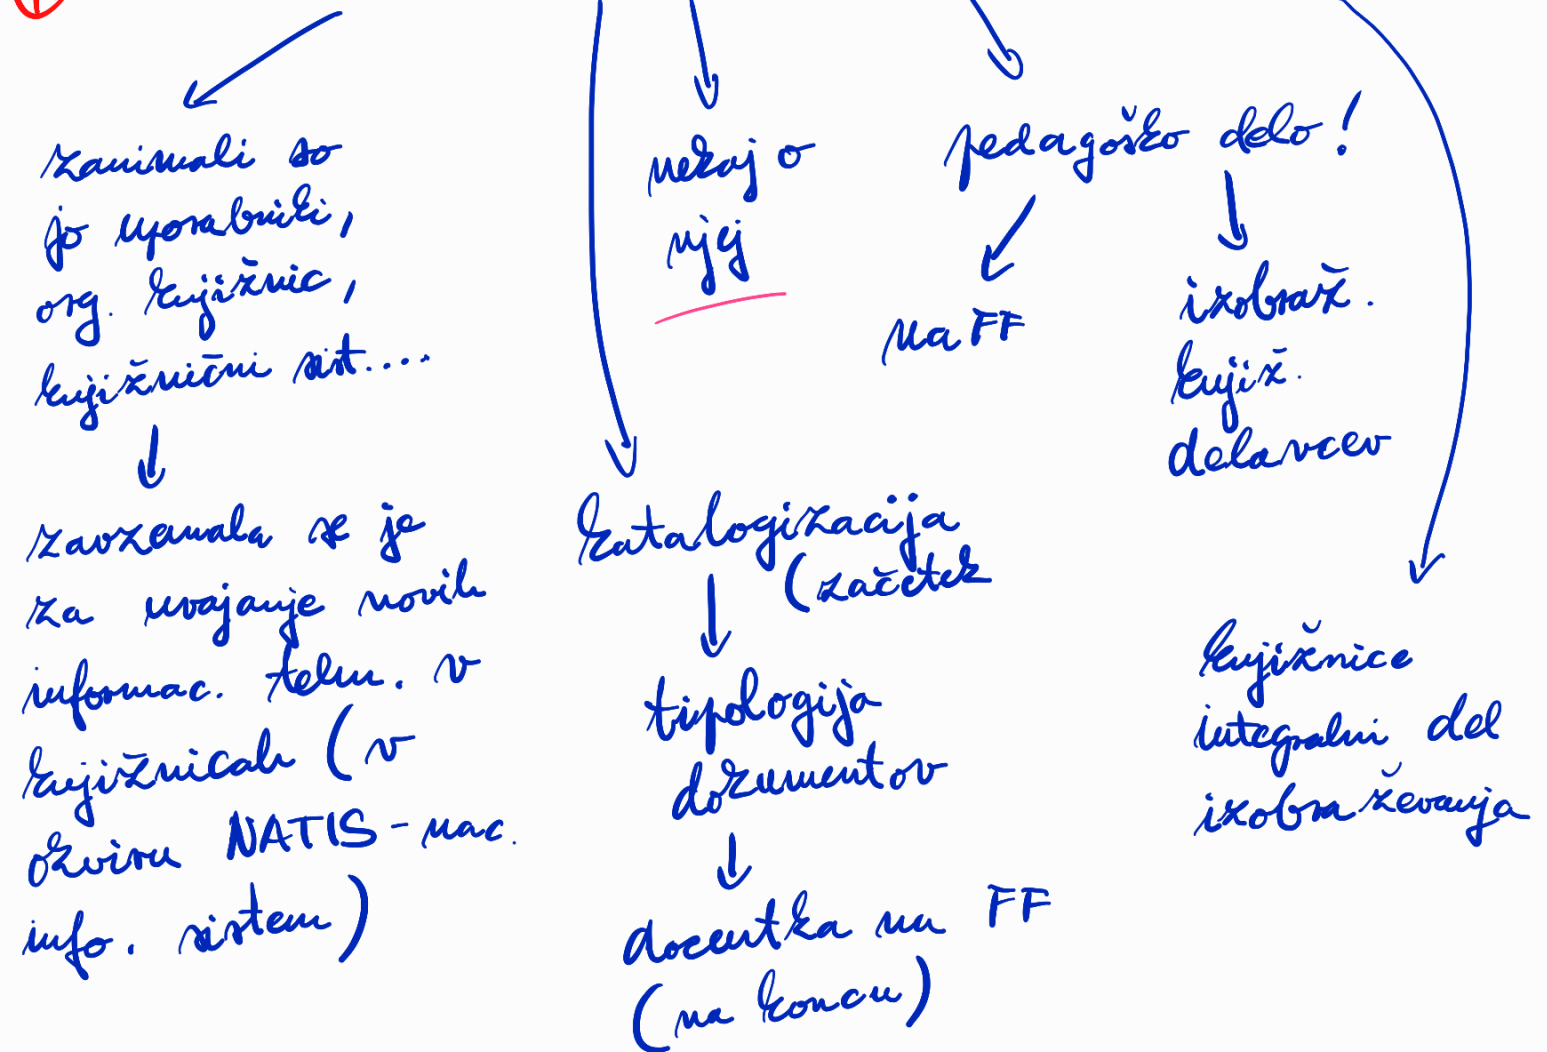 zanimali so
jo uporabniki,
org. knjižnic,
knjižnični sist....
zavzemala se je
za uvajanje novih
informac. tehn. v
knjižnicah (v
okviru NATIS - nac.
info. sistem)
nekaj o
njej
katalogizacija
(začetek
tipologija
dokumentov
docentka na FF
(na koncu)
pedagoško delo!
na FF
izobraž.
knjiž.
delavcev
knjižnice
integralni del
izobraževanja